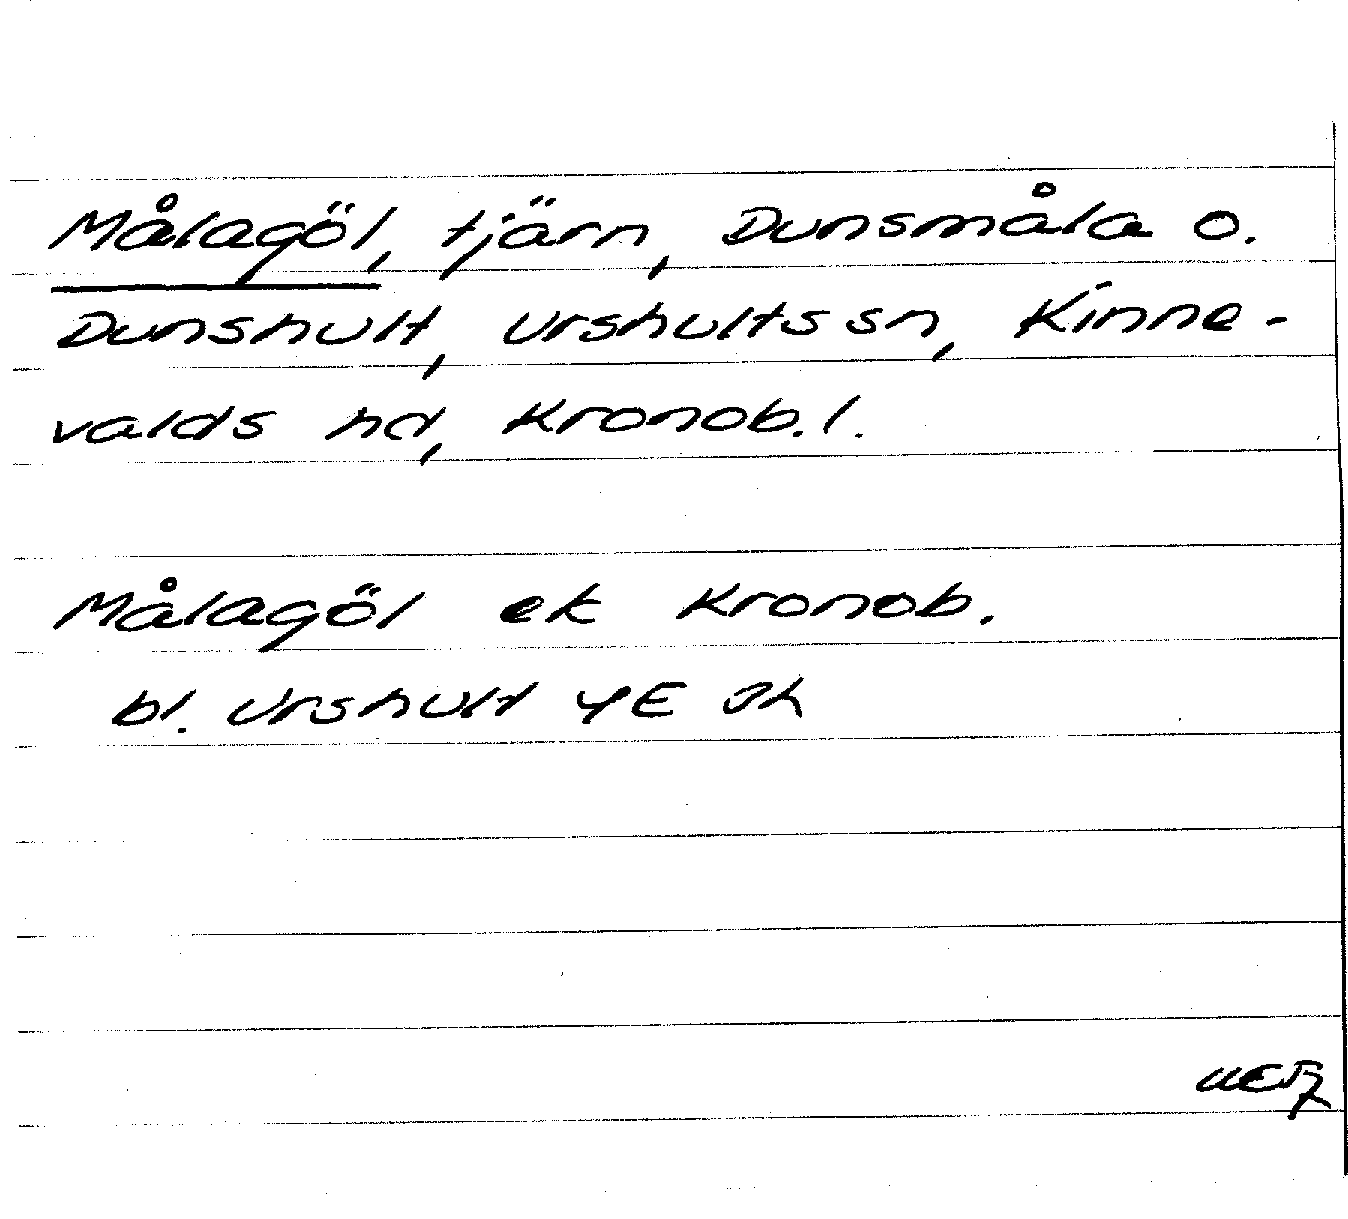 Målagöl, tjärn, Dunsmåla o.
Dunshult, Urshults sn, Kinne-
valds hd, Kronob. l.
Målagöl ek Kronob.
bl. Urshult 4E